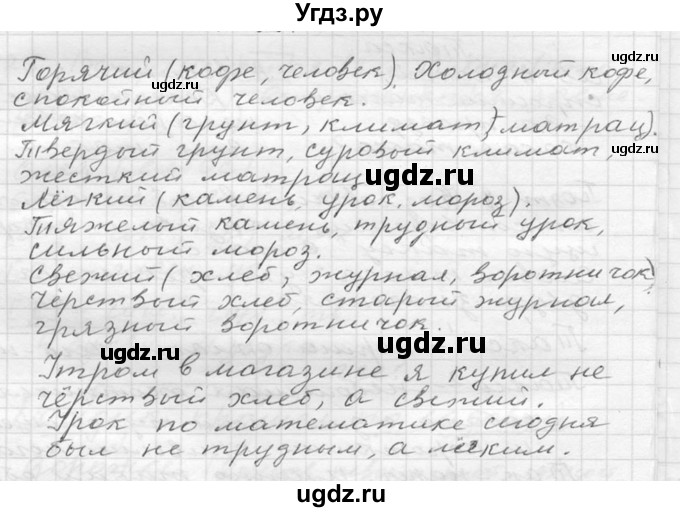 Угдз.ру
Горячий (кофе, человек). Холодный кофе,
ugdz.ru
спокойный человек.
Мягкий (грунт, климат, матрац).
ugdz.ru
Твердый грунт, суровый климат,
жесткий матрац
ugdz.ru
Лёгкий (камень, урок, мороз).
Тяжелый камень, трудный урок,
сильный мороз.
Свежий (хлеб, журнал, воротничок)
ugdz.ru
Чёрствый хлеб, старый журнал,
грязный воротничок.
ugdz.ru
Утром в магазине я купил не
чёрствый хлеб, а свежий.
Урок по математике сегодня
был не трудным, а лёгким.
ugdz.ru
ugdz.ru